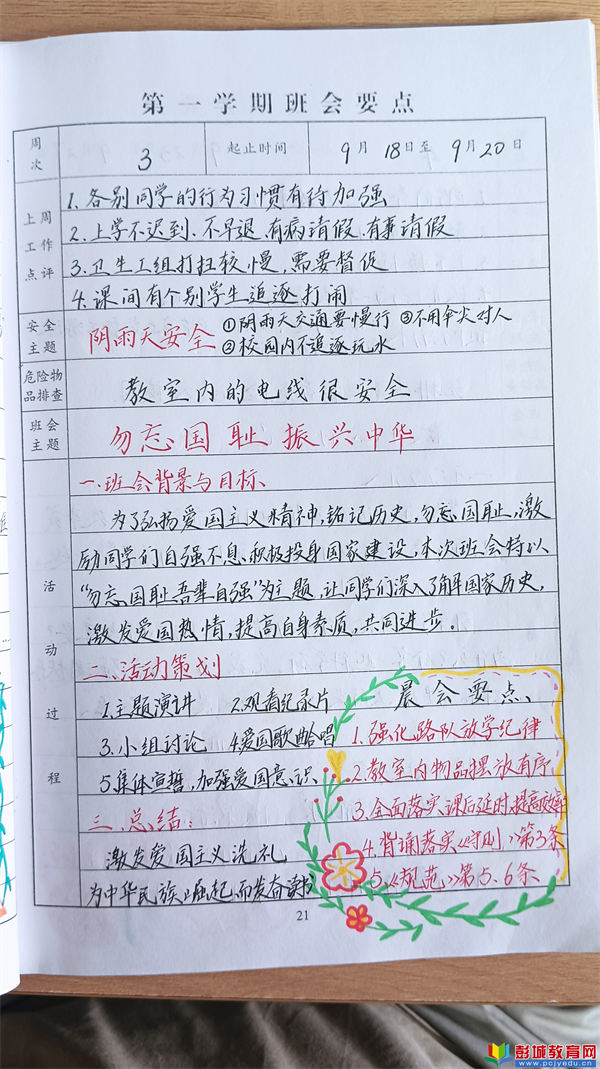 第一学期班会要点
周次 3 起止时间 9月18日至9月20日
上周工作点评
1.各别同学的行为习惯有待加强
2.上学不迟到、不早退、有病请假、有事请假
3.卫生工组打扫较慢,需要督促
4.课间有个别学生追逐打闹
安全主题 阴雨天安全 ①阴雨天交通要慢行 ③不用伞尖对人
②校园内不追逐玩水
危险物品排查 教室内的电线很安全
班会主题 勿忘国耻 振兴中华
活动过程
一.班会背景与目标、
为了弘扬爱国主义精神,铭记历史,勿忘国耻,激
励同学们自强不息、积极投身国家建设,本次班会特以
“勿忘国耻吾辈自强”为主题,让同学们深入了解国家历史,
激发爱国热情,提高自身素质,共同进步。
二、活动策划
1.主题演讲 2.观看纪录片
3.小组讨论 4.爱国歌曲合唱
5.集体宣誓,加强爱国意识、
三、总结:
激发爱国主义洗礼
为中华民族崛起而发奋读书
晨会要点、
1.强化路队放学纪律
2.教室内物品摆放有序
3.全面落实课后延时,提高效率
4.背诵落实《守则》第3条
5.《规范》第5、6条
21
彭城教育网
www.pcjyedu.cn